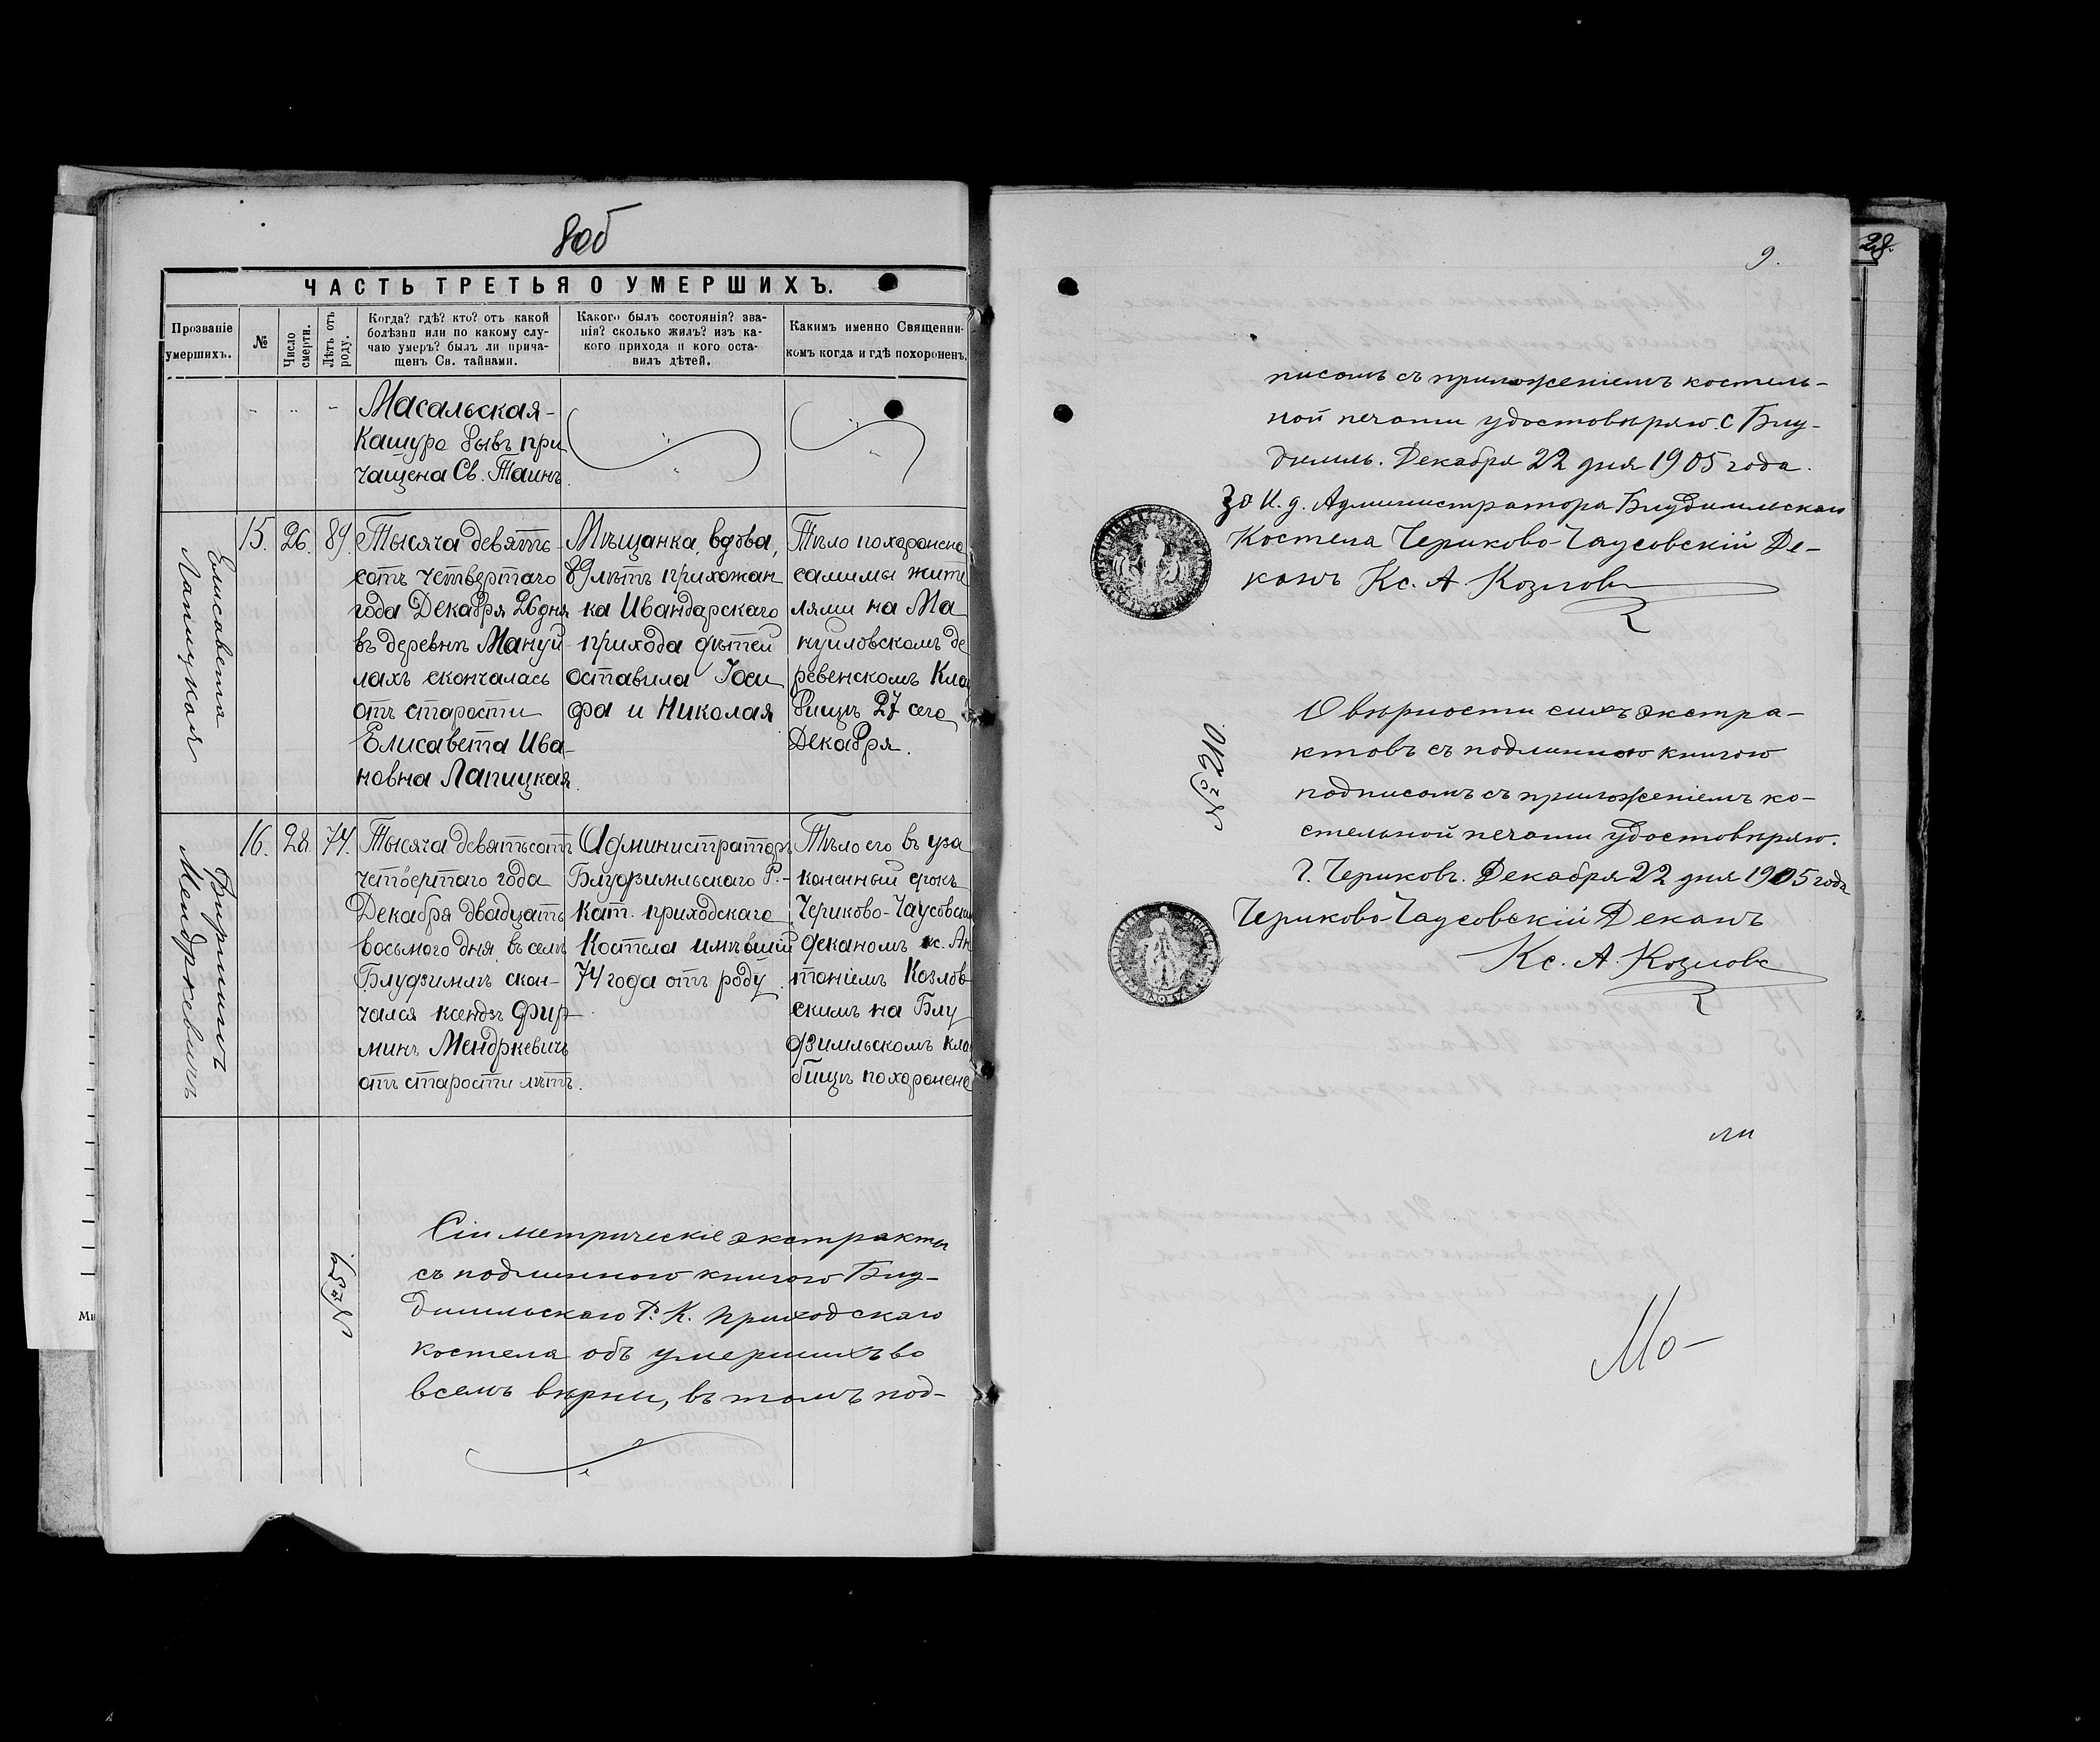 8об
ЧАСТЬ ТРЕТЬЯ О УМЕРШИХЪ.
Прозваніе
умершихъ.
№
Число
смерти.
Лѣтъ отъ
роду.
Когда? гдѣ? кто? отъ какой
болѣзни или по какому слу-
чаю умеръ? былъ ли прича-
щенъ Св. тайнами.
Какого былъ состоянія? зва-
нія? сколько жилъ? изъ ка-
кого прихода и кого оста-
вилъ дѣтей.
Какимъ именно Священни-
комъ когда и гдѣ похороненъ.
Масальская-
Кашура бывъ при
чащена Св. Таинъ.
Елисавета
Лапицкая
15.
26.
89.
Тысяча девять-
сотъ четвертаго
года Декабря 26 дня
въ деревнѣ Мануй-
лахъ скончалась
отъ старости
Елисавета Ива-
новна Лапицкая.
Мѣщанка, вдова,
89 лѣтъ прихожан
ка Ивандарскаго
прихода дѣтей
оставила Іоси
фа и Николая
Тѣло похоронено
самими жите
лями на Ма
нуиловскомъ де
ревенскомъ Клад
бищѣ 27 сего
Декабря.
Фирминъ
Мендркевичъ
16.
28.
74.
Тысяча девятьсотъ
четвертаго года
Декабря двадцать
восьмого дня, въ селѣ
Блудзимлѣ скон-
чался ксендзъ Фир-
минъ Мендркевичъ
отъ старости лѣтъ.
Администраторъ
Блудзимльскаго Р.-
Кат. приходскаго
Костела имѣвшій
74 года отъ роду.
Тѣло его въ уза
коненный срокъ
Чериково-Чаусовскимъ
деканомъ кс. Ан
тоніемъ Козлов-
скимъ на Блу
дзимльскомъ кла
бищѣ похоронено
Сіи метрическіе экстракты
съ подлинною книгою
Р. К. приходскаго
костела объ умершихъ во
всемъ вѣрны, въ томъ под-
28
9.
писомъ съ приложеніемъ костель-
ной печати удостовѣряю. С.
Декабря 22 дня 1905 года.
За И. д. Администратора
Костела Чериково-Чаусовскій Де-
канъ Кс. А. Козловс
О вѣрности сихъ экстра-
ктовъ съ подлинною книгою
подписомъ съ приложеніемъ ко-
стельной печати удостовѣряю.
Г. Чериковъ. Декабря 22 дня 1905 года
Чериково-Чаусовскій Деканъ
Кс. А. Козловс